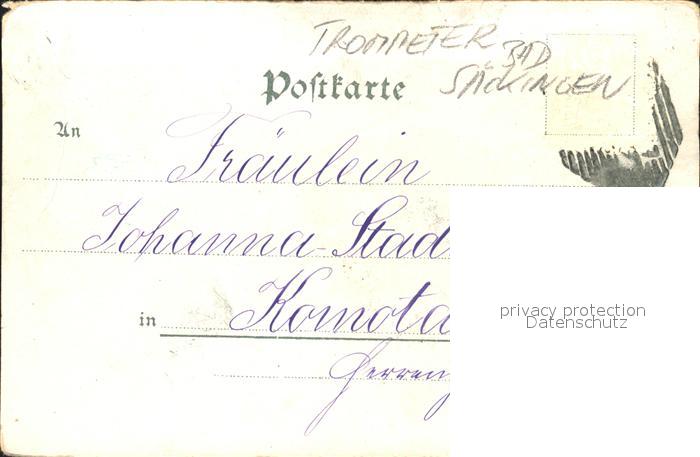 TROMPETER BAD
SÄCKINGEN
Postkarte
An
Fräulein
Johanna Stad
in Komota
Herren
privacy protection
Datenschutz